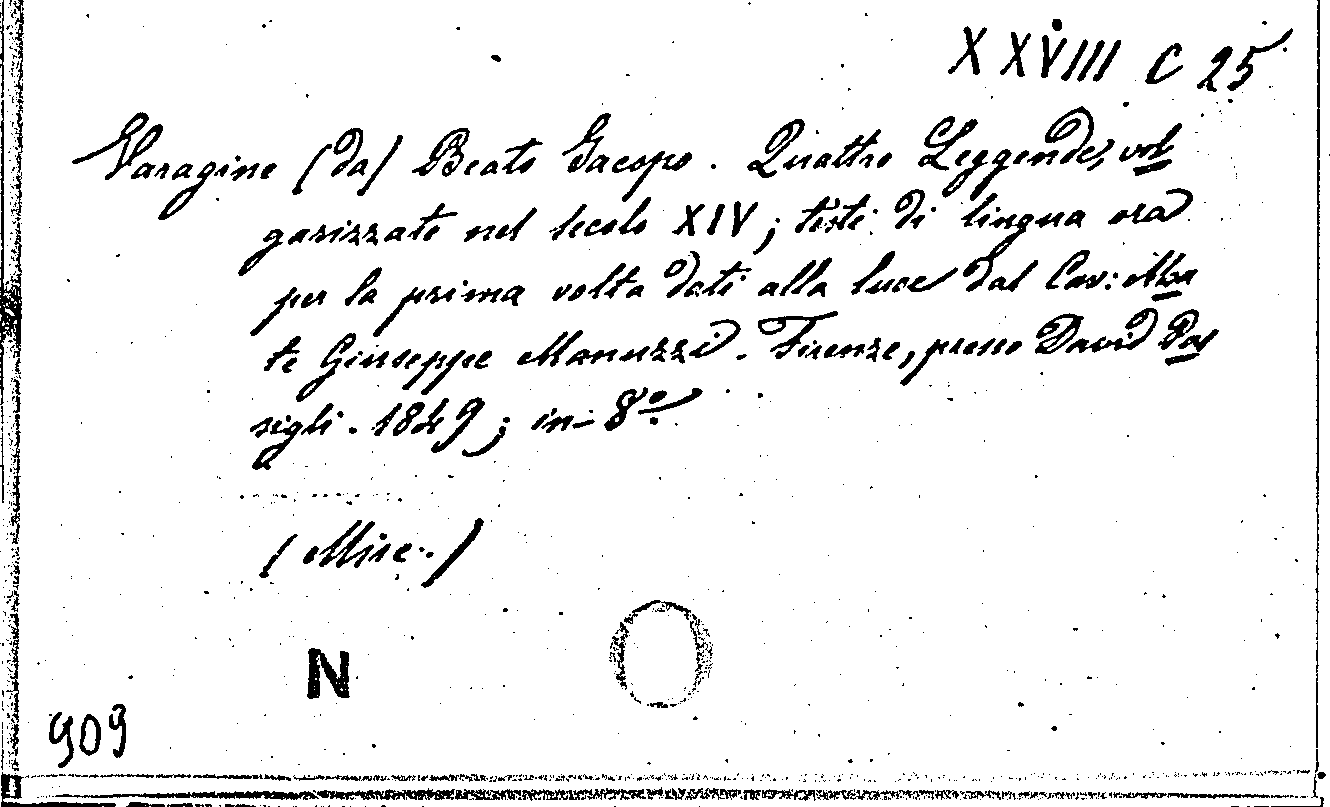 XXVIII C 25
Varagine (da) Beato Jacopo. Quattro Leggende, vol
garizzate nel secolo XIV; testi di lingua ora
per la prima volta dati alla luce dal Cav: Aba
te Giuseppe Manuzzi. Firenze, presso David Pas
sigli. 1849; in-8º.
(Misc.)
N
909